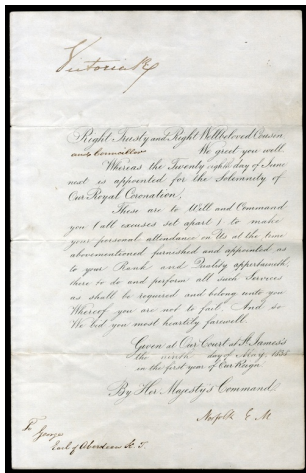 Victoria R
Right Trusty and Right Wellbeloved Cousin
and Councillor We greet you well.
Whereas the Twenty eighth day of June
next is appointed for the Solemnity of
Our Royal Coronation,
These are to Will and Command
you (all excuses set apart) to make
your personal attendance on Us at the time
abovementioned furnished and appointed as
to your Rank and Quality appertaineth,
there to do and perform all such Services
as shall be required and belong unto you
Whereof you are not to fail. And so
We bid you most heartily farewell.
Given at Our Court at St James's
the ninth day of May 1838
in the first year of Our Reign
By Her Majesty's Command
Norfolk E M
To
George
Earl of Aberdeen K. T.